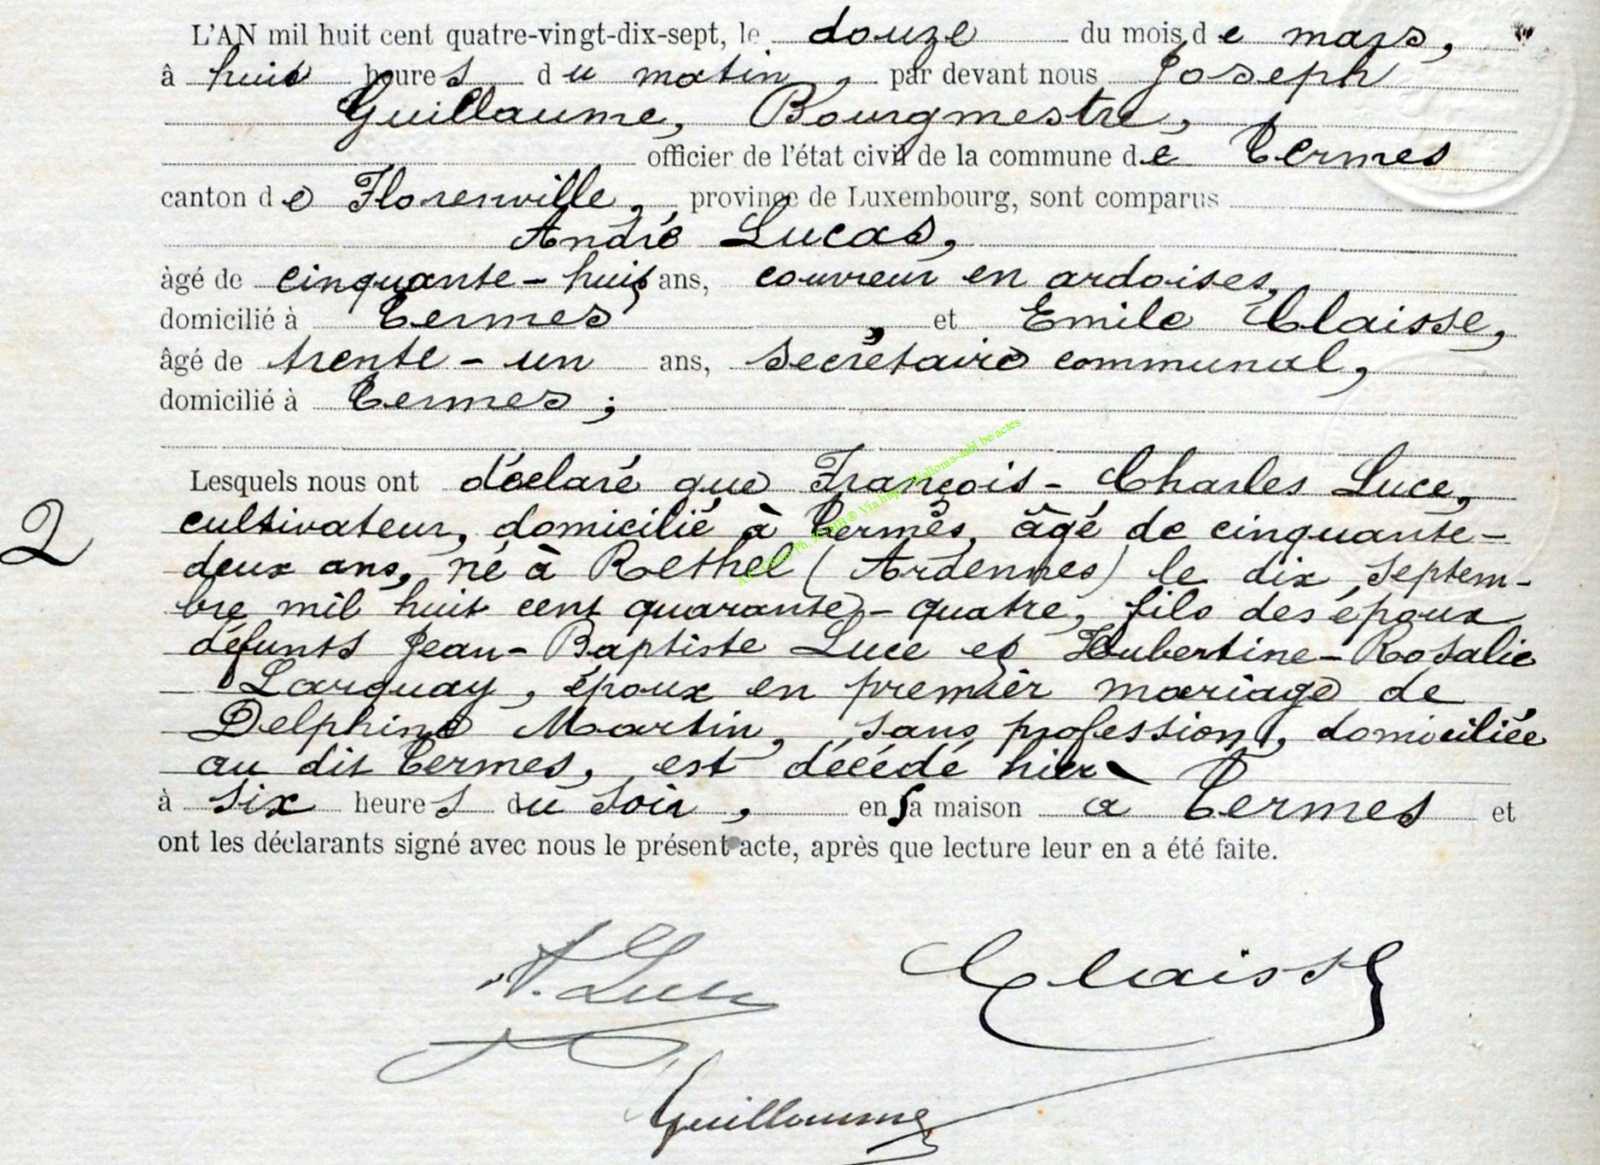 L'AN mil huit cent quatre-vingt-dix-sept, le douze du mois de mars,
à huit heures du matin, par devant nous Joseph
Guillaume, Bourgmestre,
officier de l'état civil de la commune de Termes
canton de Florenville, province de Luxembourg, sont comparus
André Lucas,
âgé de cinquante-huit ans, couvreur en ardoises,
domicilié à Termes, et Emile Claisse,
âgé de trente-un ans, secrétaire communal,
domicilié à Termes;
Lesquels nous ont déclaré que François-Charles Luce,
2
cultivateur, domicilié à Termes, âgé de cinquante-
deux ans, né à Rethel (Ardennes) le dix septem-
bre mil huit cent quarante-quatre, fils des époux
défunts Jean-Baptiste Luce et Hubertine-Rosalie
Larquay, époux en premier mariage de
Delphine Martin, sans profession, domiciliée
au dit Termes, est décédé hier
à six heures du soir, en sa maison à Termes et
ont les déclarants signé avec nous le présent acte, après que lecture leur en a été faite.
Claisse
Guillaume